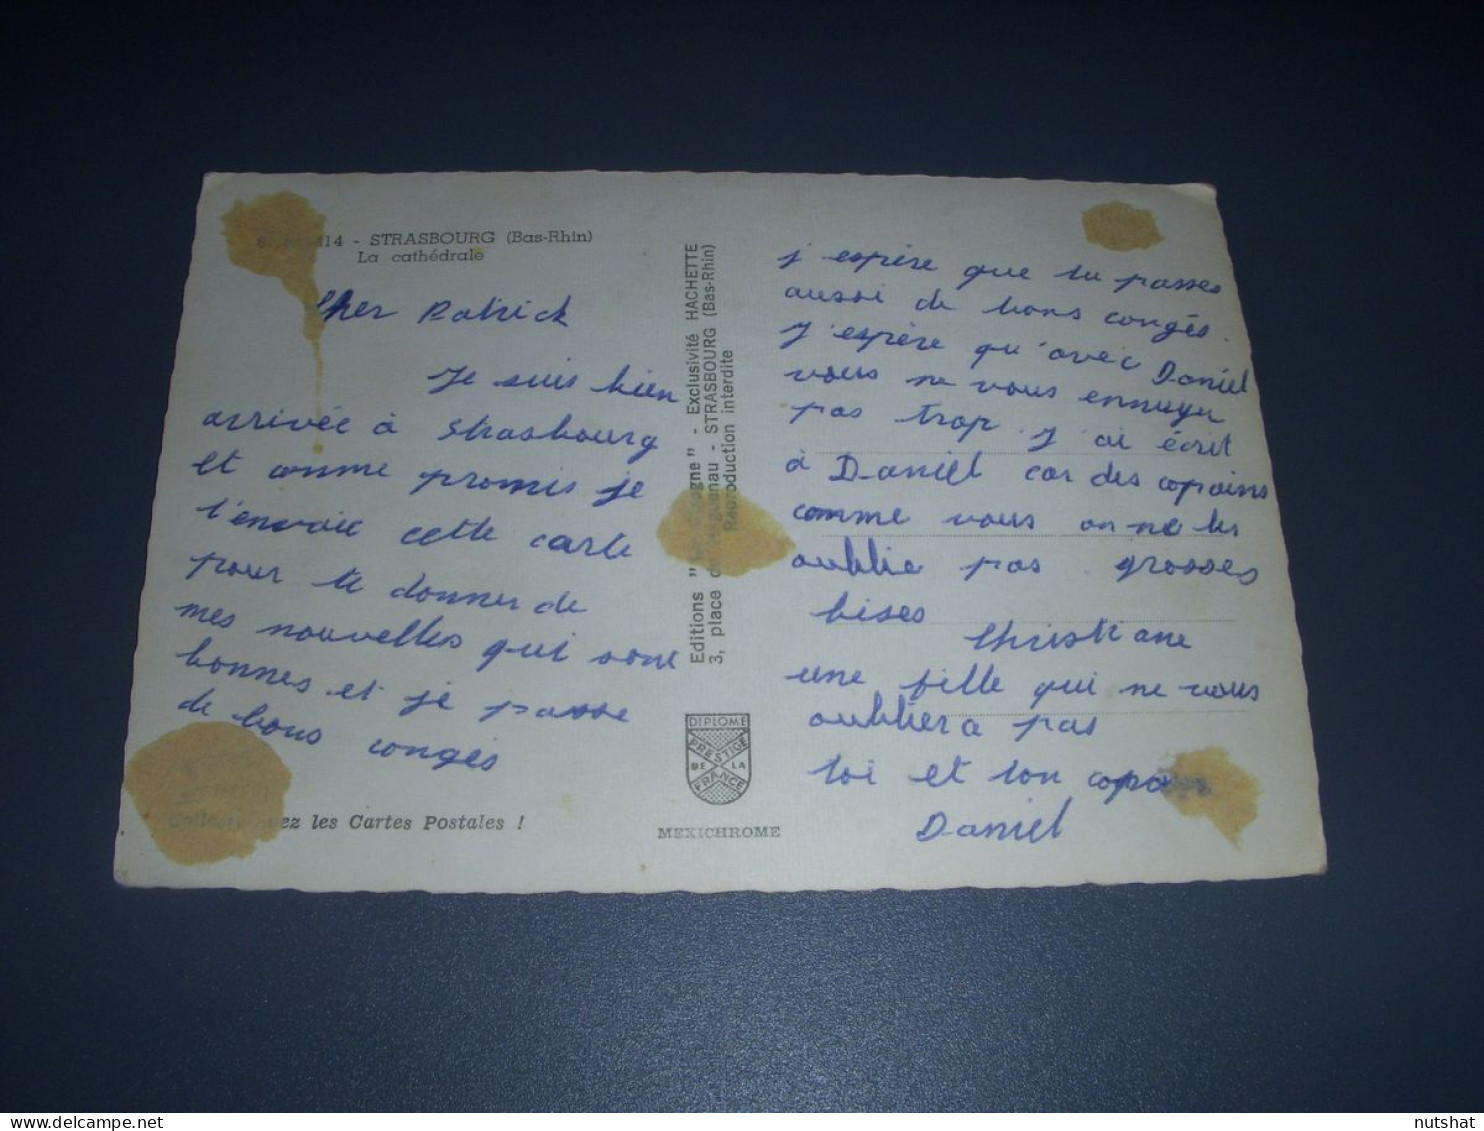 114 - STRASBOURG (Bas-Rhin)
La cathédrale
Cher Patrick
Je suis bien
arrivée à Strasbourg
et comme promis je
t'envoie cette carte
pour te donner de
mes nouvelles qui sont
bonnes et je passe
de bons congés
ez les Cartes Postales !
Editions " gogne" - Exclusivité HACHETTE
3, place de Haguenau - STRASBOURG (Bas-Rhin)
Reproduction interdite
DIPLOME
PRESTIGE
DE LA
FRANCE
MEXICHROME
j'espère que tu passes
aussi de bons congés.
J'espère qu'avec Daniel
vous ne vous ennuyer
pas trop. J'ai écrit
à Daniel car des copains
comme vous on ne les
oublie pas grosses
bises
Christiane
une fille qui ne vous
oubliera pas
toi et ton copain
Daniel
nutshat